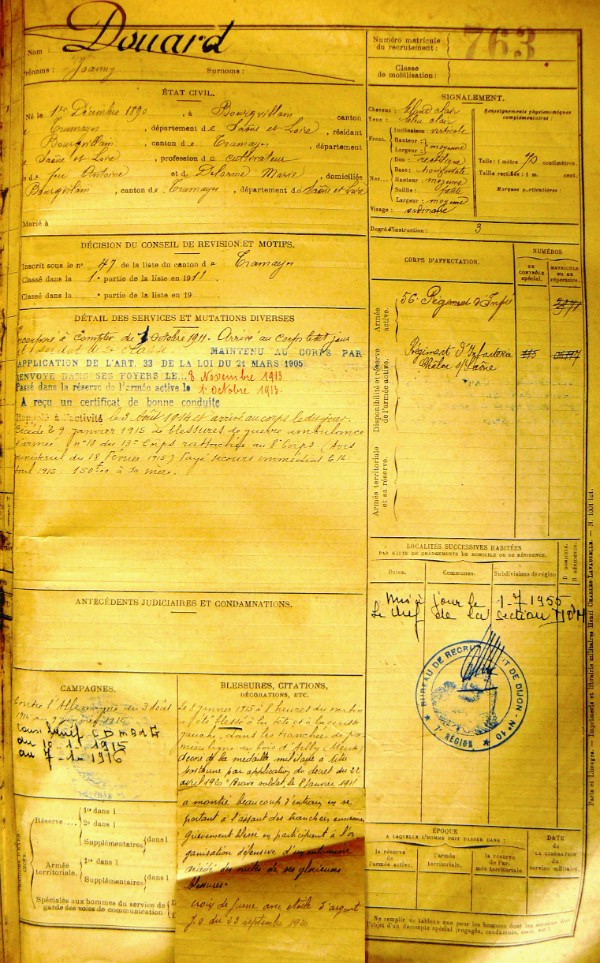 Nom : Douard
Prénoms : Joanny Surnoms :
Numéro matricule du recrutement : 763
Classe de mobilisation :
ÉTAT CIVIL.
Né le 1er Décembre 1890, à Bourgvilain canton
de Tramayes, département de Saône et Loire, résidant
à Bourgvilain, canton de Tramayes, département
de Saône et Loire, profession de cultivateur
fils de feu Antoine et de Delorme Marie, domiciliés
à Bourgvilain, canton de Tramayes, département de Saône et Loire
Marié à
SIGNALEMENT.
Cheveux :
Yeux :
Front. Inclinaison verticale
Hauteur = moyenne
Largeur =
Nez. Dos : rectiligne
Base : horizontale
Hauteur = moyenne
Saillie :
Largeur = moyenne
Visage : ordinaire
Renseignements physionomiques complémentaires :
Taille : 1 mètre 70 centimètres.
Taille rectifiée : 1 m. cent.
Marques particulières :
Degré d'instruction : 3
DÉCISION DU CONSEIL DE RÉVISION ET MOTIFS.
Inscrit sous le n° 47 de la liste du canton de Tramayes
Classé dans la 1e partie de la liste en 1911
Classé dans la e partie de la liste en 19
CORPS D'AFFECTATION.
NUMÉROS
AU CONTRÔLE SPÉCIAL.
MATRICULE OU AU RÉPERTOIRE.
Armée active.
56e Régiment d'Infie
Disponibilité et réserve de l'armée active.
Régiment d'Infanterie
Chalon s/ Saône
Armée territoriale et sa réserve.
DÉTAIL DES SERVICES ET MUTATIONS DIVERSES
Incorporé à compter du Octobre 1911. Arrivé au corps
MAINTENU AU CORPS PAR
APPLICATION DE L'ART. 33 DE LA LOI DU 21 MARS 1905
RENVOYÉ DANS SES FOYERS LE 8 Novembre 1913
Passé dans la réserve de l'armée active le 1er Octobre 1913.
A reçu un certificat de bonne conduite
Rappelé à l'activité le 3 août 1914 et arrivé au corps le dit jour
Décédé le 9 janvier 1915 de blessures de guerre ambulance
d'armée n° 18 du 13e Corps rattachée au 8e Corps (Avis
ministériel du 18 février 1915) Payé secours immédiat le 14
1915. 150 frs à sa mère.
ANTÉCÉDENTS JUDICIAIRES ET CONDAMNATIONS.
LOCALITÉS SUCCESSIVES HABITÉES
PAR SUITE DE CHANGEMENTS DE DOMICILE OU DE RÉSIDENCE.
Dates. Communes. Subdivisions de région. D. DOMICILE. R. RÉSIDENCE.
Mis à jour le 1-7-1955
Le chef de la section
BUREAU DE RECRUTEMENT DE DIJON N° 10
7e RÉGION
CAMPAGNES.
Contre l'Allemagne du 3 août
du 10-1-1915
au 7-1-1916
BLESSURES, CITATIONS, DÉCORATIONS, ETC.
Le 8 janvier 1915 à 1 heures du matin
a été blessé à la tête et à la cuisse
gauche, dans les tranchées de
premières lignes au bois d'Ailly (Meuse)
décoré de la médaille militaire à titre
posthume par application du décret du 22
avril 1920 "Brave soldat le 8 janvier 1915
a montré beaucoup d'entrain en se
portant à l'assaut des tranchées ennemies
Grièvement blessé en participant à l'or-
ganisation défensive d'un entonnoir
décédé des suites de ses glorieuses
blessures"
Croix de guerre avec étoile d'argent
J.O. du 23 septembre 1920
Réserve
1re dans l
2e dans l
Supplémentaires dans l
Armée territoriale.
1re dans l
Supplémentaires dans l
Spéciale aux hommes du service de garde des voies de communication
ÉPOQUE
A LAQUELLE L'HOMME DOIT PASSER DANS :
la réserve de l'armée active.
l'armée territoriale.
la réserve de l'armée territoriale
DATE DE LA LIBÉRATION DU SERVICE MILITAIRE.
Ne remplir ce tableau que pour les hommes dont les services font l'objet d'un décompte spécial (engagés, condamnés, omis, etc.).
Paris et Limoges. — Imprimerie et librairie militaires Henri CHARLES-LAVAUZELLE.